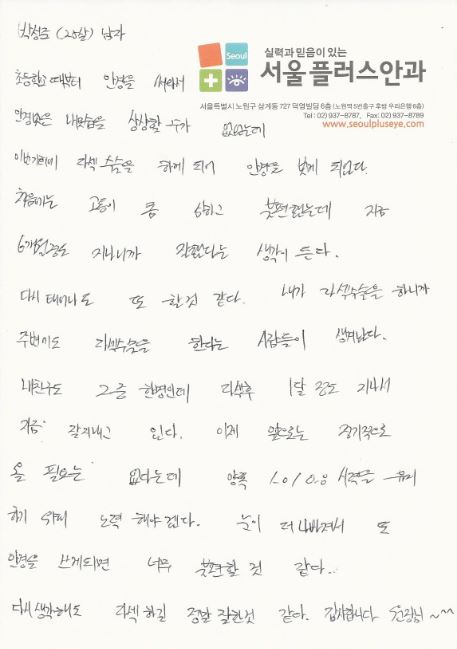 박청조 (25살) 남자
Seoul
실력과 믿음이 있는
서울플러스안과
서울특별시 노원구 상계동 727 덕영빌딩 6층 (노원역 5번 출구 후방 우리은행 6층)
Tel : 02) 937-8787, Fax: 02) 937-8789
www.seoulpluseye.com
초등학교때부터 안경을 써와서
안경없은 내모습을 상상할 수가 없었는데
이번기회에 라섹 수술을 하게 되어 안경을 벗게 되었다.
처음에는 고통이 좀 심하고 불편했는데 지금
6개월정도 지나니까 잘했다는 생각이 든다.
다시 태어나도 또 할것 같다. 내가 라섹수술을 하니까
주변에도 라섹수술을 한다는 사람들이 생겨났다.
내친구도 그 중 한명인데 라섹후 1달 정도 지나서
지금 잘지내고 있다. 이제 앞으로는 정기적으로
올 필요는 없다는데 양쪽 1.0/0.8 시력을 유지
하기 위해 노력 해야겠다. 눈이 더 나빠져서 또
안경을 쓰게되면 너무 불편할 것 같다..
다시 생각해도 라섹하길 정말 잘한것 같다. 감사합니다 원장님 ~^^